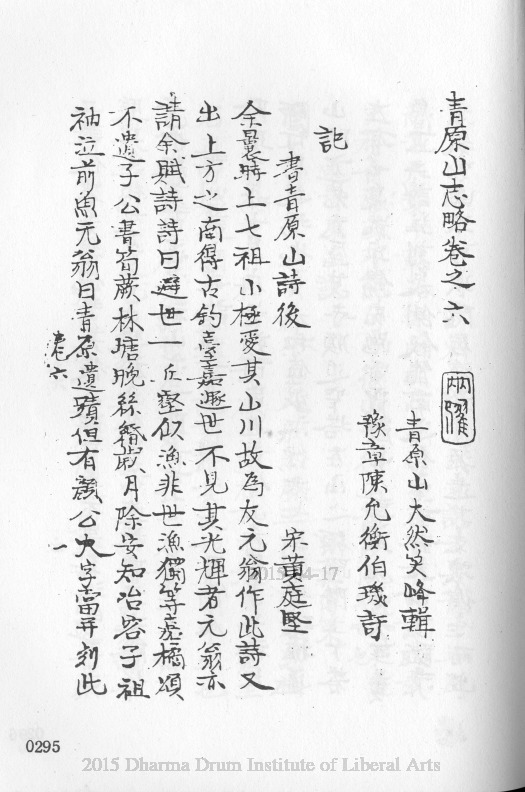 青原山志略卷之六
兩曜
青原山大然笑峰輯
豫章陳允衡伯璣訂
記
書青原山詩後
宋黃庭堅
余曩時上七祖山極愛其山川故為友元翁作此詩又
出上方之南得古釣臺嘉遯世不見其光輝者元翁亦
請余賦詩詩曰避世一丘壑似漁非世漁獨等
橘頌
不遺子公書筍蕨林塘晚絲緡歲月除安知冶容子祖
袖泣前魚元翁曰青原遺蹟但有顏公大字當并刻此
卷六
一
2015-04-17
0295
2015 Dharma Drum Institute of Liberal Arts